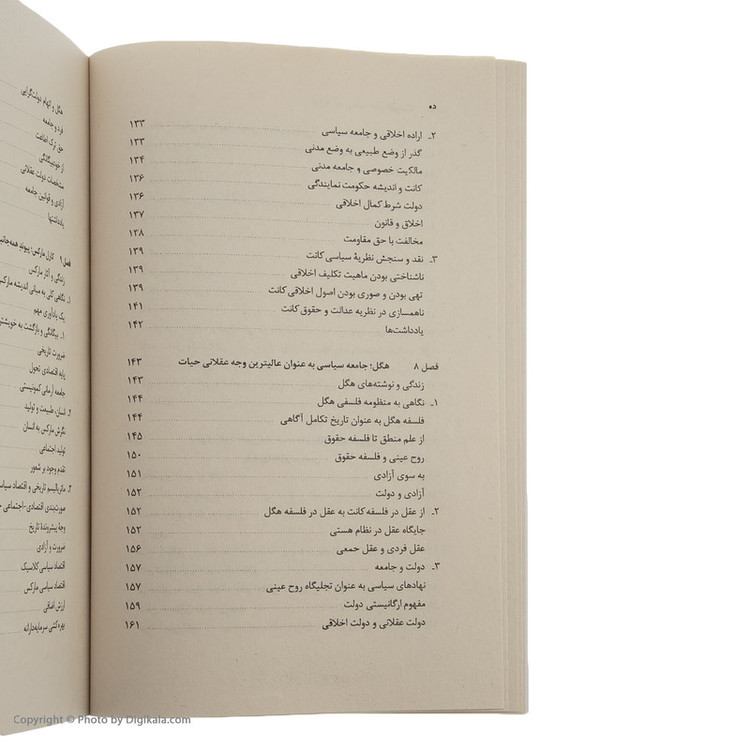 ده
۲ـ اراده اخلاقی و جامعه سیاسی ۱۳۳
گذر از وضع طبیعی به وضع مدنی ۱۳۳
مالکیت خصوصی و جامعه مدنی ۱۳۴
کانت و اندیشه حکومت نمایندگی ۱۳۶
دولت شرط کمال اخلاقی ۱۳۶
اخلاق و قانون ۱۳۷
مخالفت با حق مقاومت ۱۳۸
۳ـ نقد و سنجش نظریهٔ سیاسی کانت ۱۳۹
ناشناختی بودن ماهیت تکلیف اخلاقی ۱۳۹
تهی بودن و صوری بودن اصول اخلاقی کانت ۱۳۹
ناهمسازی در نظریه عدالت و حقوق کانت ۱۴۱
یادداشت‌ها ۱۴۲
فصل ۸ هگل؛ جامعه سیاسی به عنوان عالیترین وجه عقلانی حیات ۱۴۳
زندگی و نوشته‌های هگل ۱۴۳
۱ـ نگاهی به منظومه فلسفی هگل ۱۴۴
فلسفه هگل به عنوان تاریخ تکامل آگاهی ۱۴۴
از علم منطق تا فلسفه حقوق ۱۴۵
روح عینی و فلسفه حقوق ۱۵۰
به سوی آزادی ۱۵۱
آزادی و دولت ۱۵۲
۲ـ از عقل در فلسفه کانت به عقل در فلسفه هگل ۱۵۲
جایگاه عقل در نظام هستی ۱۵۲
عقل فردی و عقل جمعی ۱۵۶
۳ـ دولت و جامعه ۱۵۷
نهادهای سیاسی به عنوان تجلیگاه روح عینی ۱۵۷
مفهوم ارگانیستی دولت ۱۵۹
دولت عقلانی و دولت اخلاقی ۱۶۱
هگل و اتهام دولت‌گرایی
فرد و جامعه
از خودبیگانگی
مشخصات دولت عقلانی
آزادی و قوانین جامعه
یادداشتها
فصل ۹ کارل مارکس؛ پیوند همه‌جانبه
زندگی و آثار مارکس
۱ـ نگاهی کلی به مبانی اندیشه مارکس
یک یادآوری مهم
۱ـ بیگانگی و بازگشت به خویشتن
ضرورت تاریخی
پایه اقتصادی تحول
جامعه آرمانی کمونیستی
۲ـ انسان، طبیعت و تولید
نگرش مارکس به انسان
تولید اجتماعی
تقدم وجود بر شعور
۳ـ ماتریالیسم تاریخی و اقتصاد سیاسی
صورت‌بندی اقتصادی-اجتماعی
وجهٔ پیشروندهٔ تاریخ
ضرورت و آزادی
اقتصاد سیاسی کلاسیک
اقتصاد سیاسی مارکس
ارزش اضافی
بهره‌کشی سرمایه‌دارانه
Copyright © Photo by Digikala.com